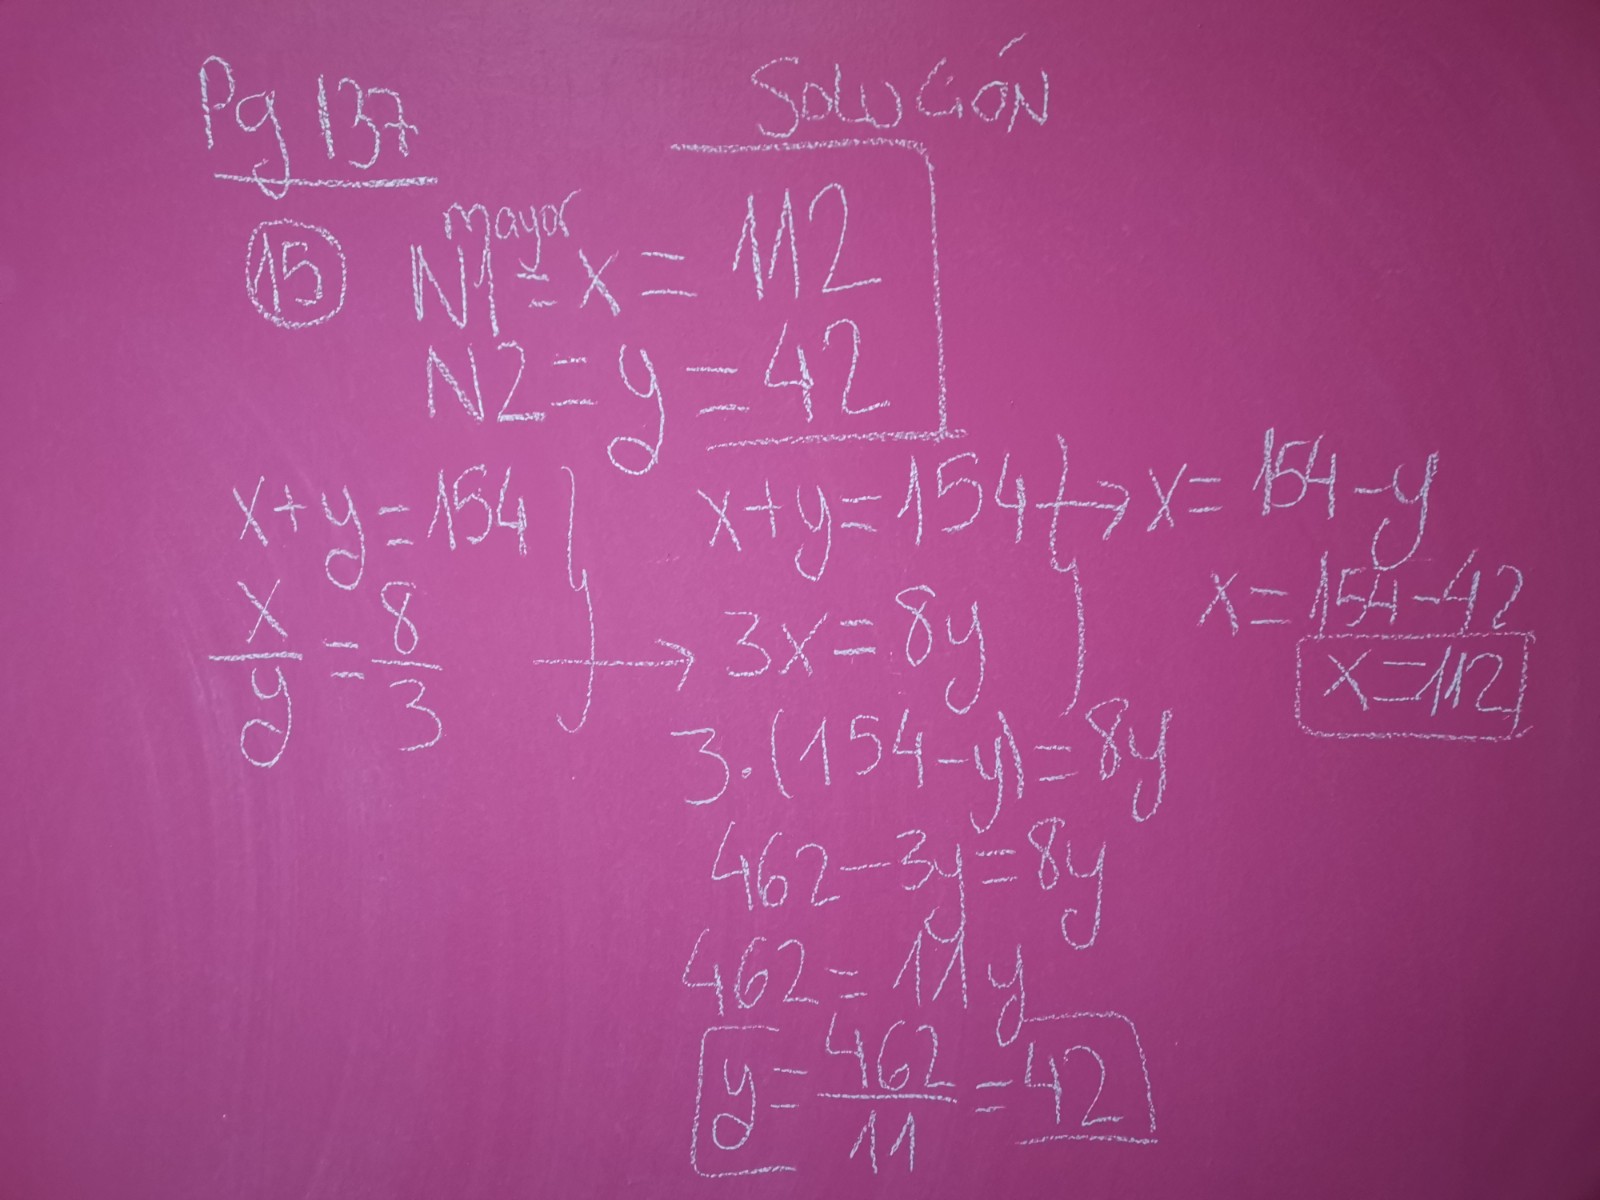 Pg 137
SOLUCIÓN
15
mayor
N1 = x = 112
N2 = y = 42
x+y=154
x/y = 8/3
x+y=154 → x= 154-y
x=154-42
x=112
→ 3x=8y
3·(154-y)=8y
462-3y=8y
462=11y
y=462/11=42